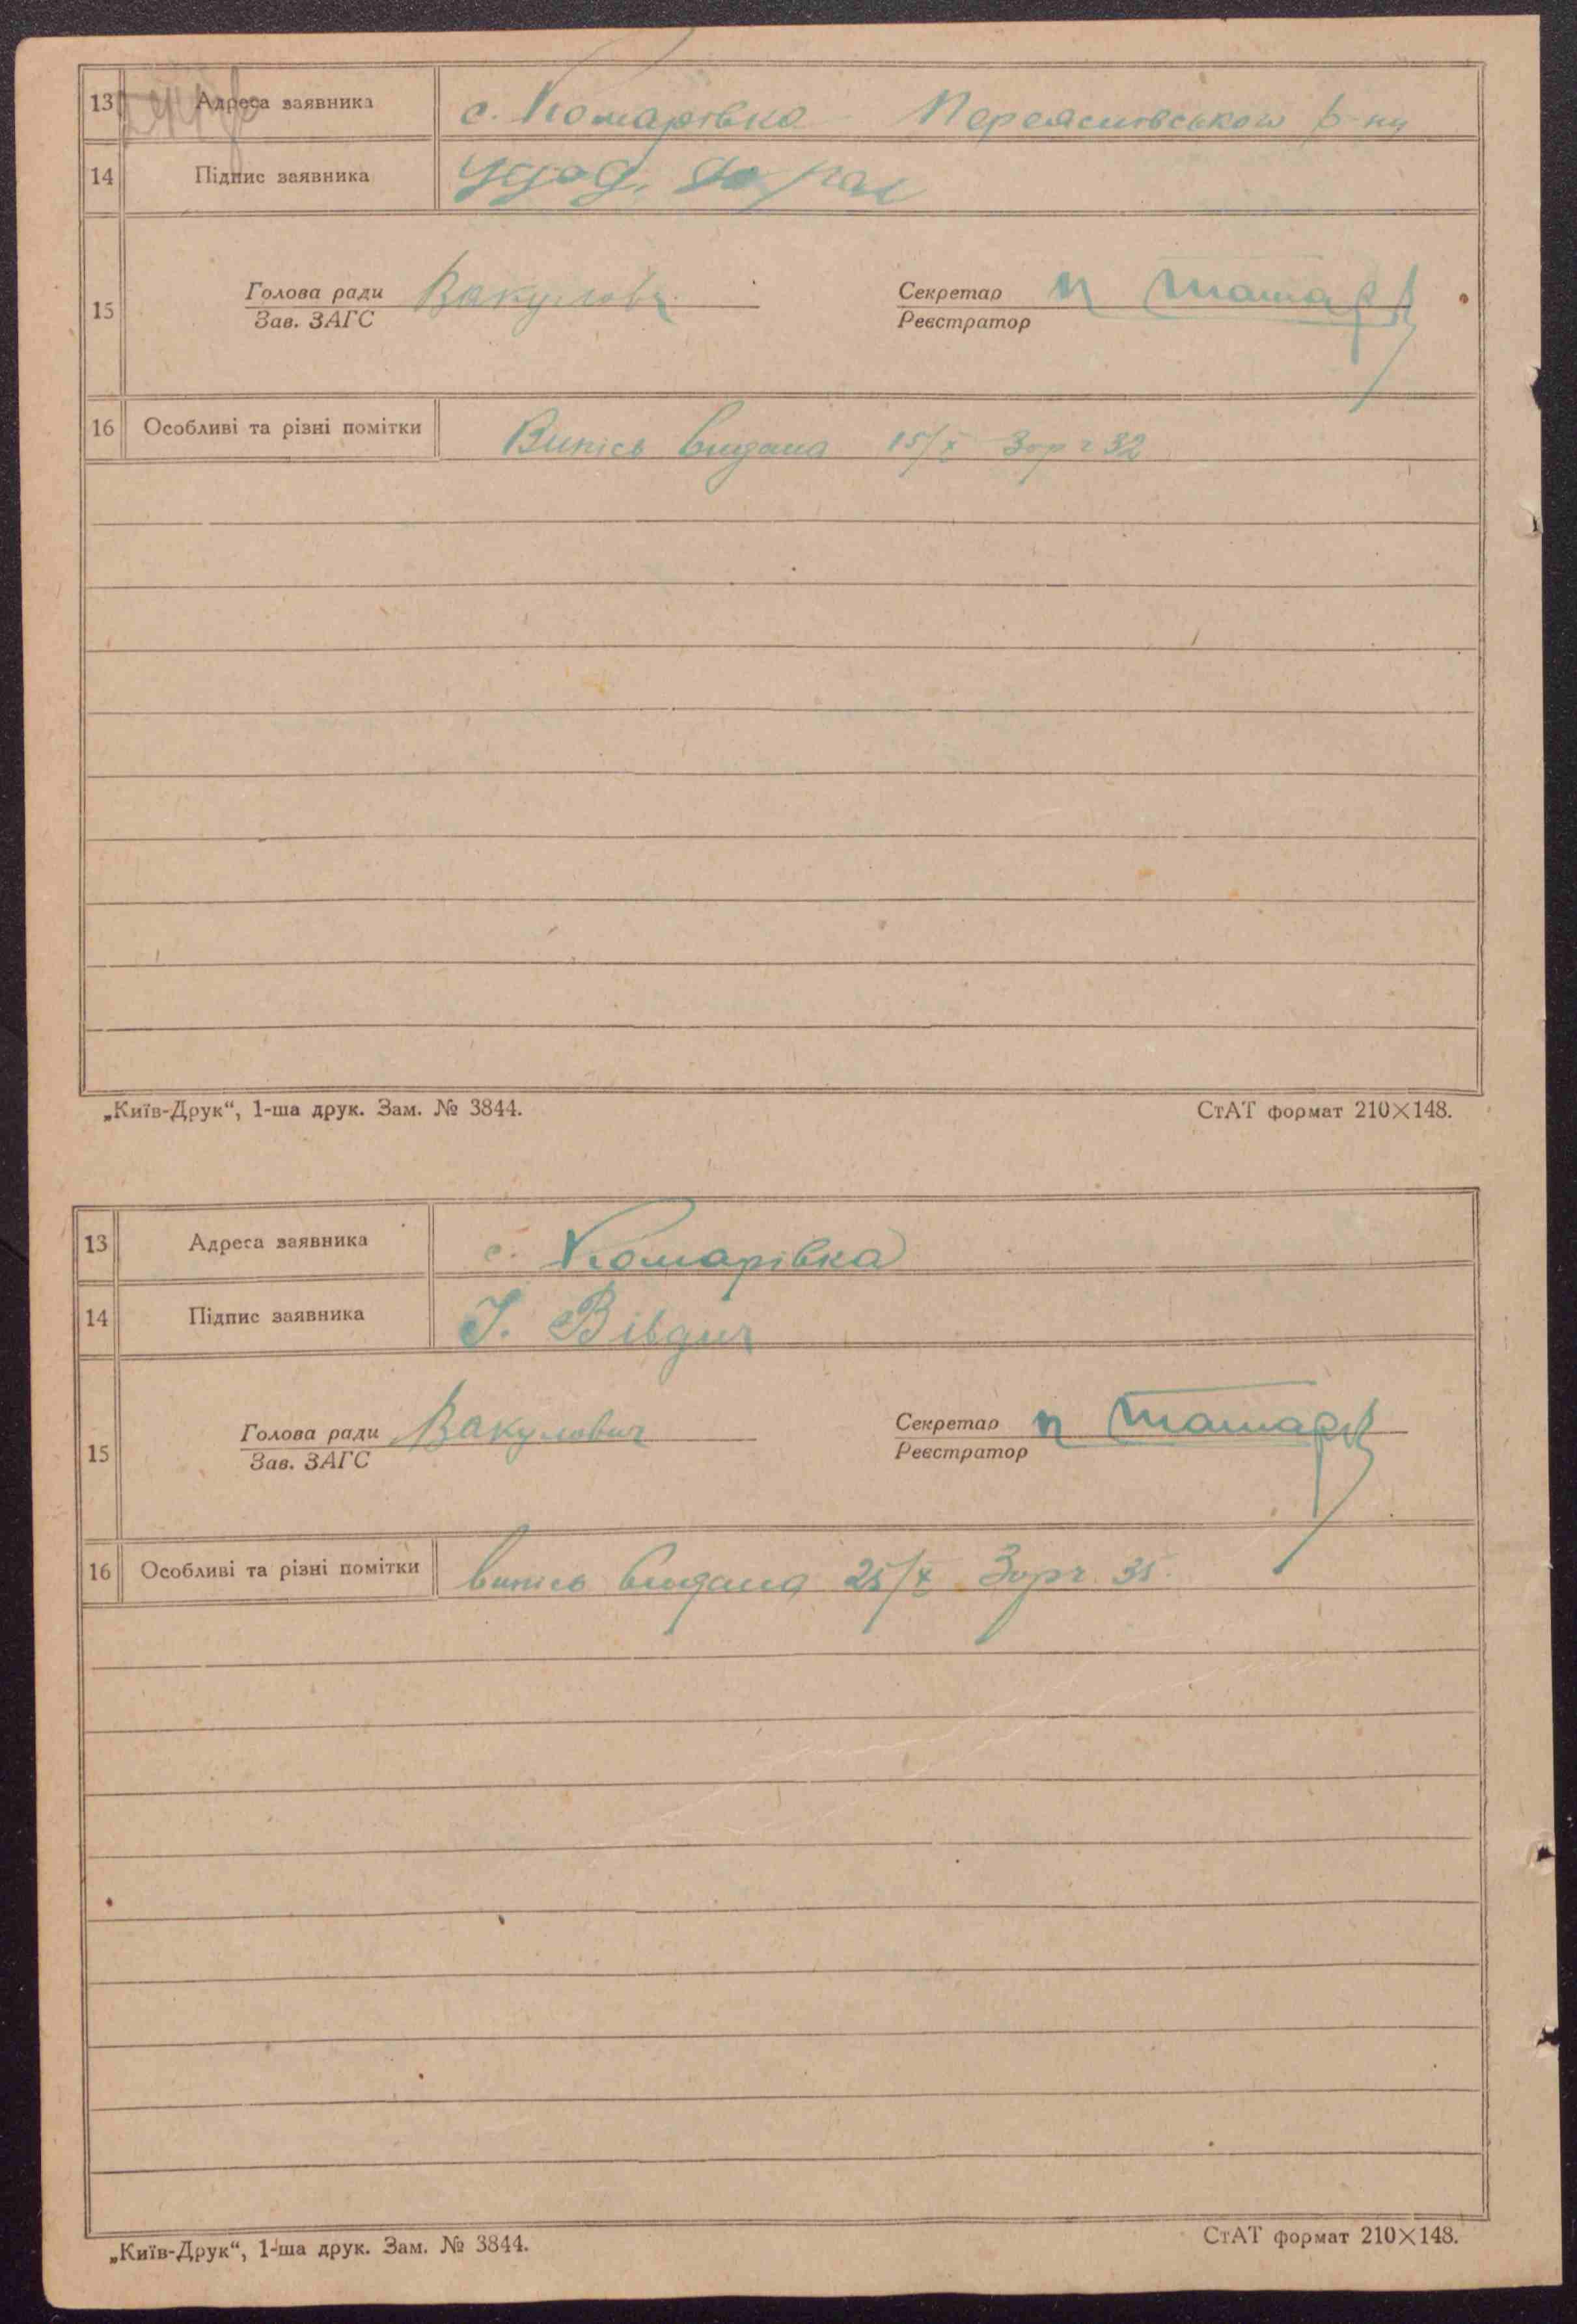 13 Адреса заявника с. Комарівка Переяслівського р-ну
14 Підпис заявника
15 Голова ради Вакулович Секретар
Зав. ЗАГС Реєстратор
16 Особливі та різні помітки Випісь видана 15/X За р № 32
„Київ-Друк“, 1-ша друк. Зам. № 3844. СтАТ формат 210×148.
13 Адреса заявника с. Комарівка
14 Підпис заявника І. Вівдич
15 Голова ради Вакулович Секретар
Зав. ЗАГС Реєстратор
16 Особливі та різні помітки випісь видана 25/X 35.
„Київ-Друк“, 1-ша друк. Зам. № 3844. СтАТ формат 210×148.